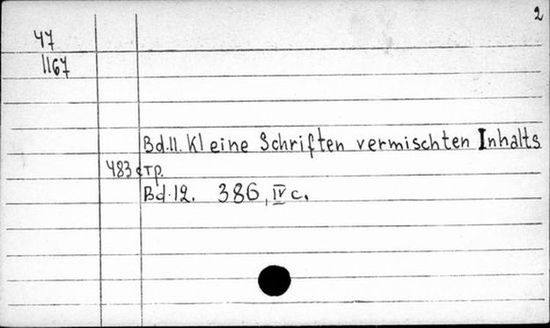 2
47
1167
Bd.11. Kleine Schriften vermischten Inhalts
483 стр.
Bd.12. 386, IV с.